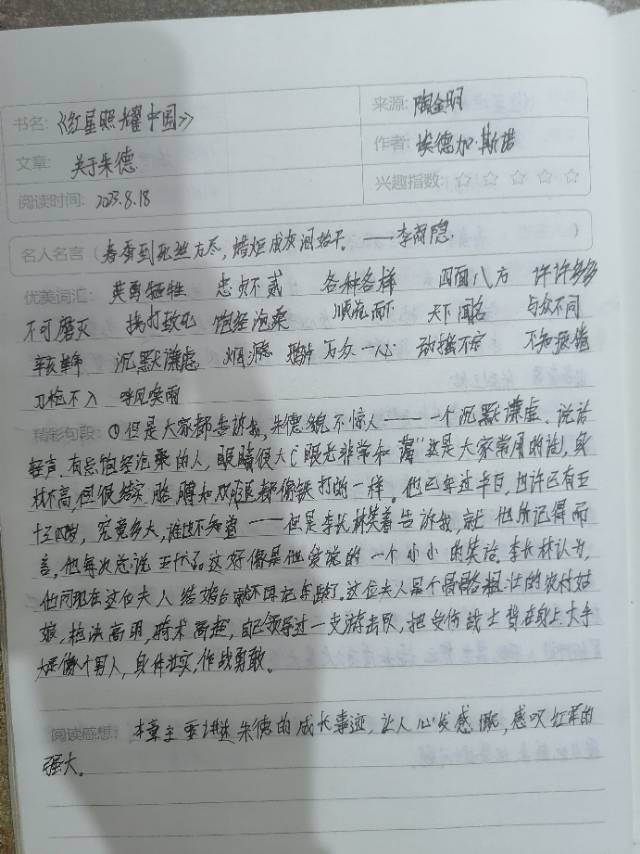 书名: 《红星照耀中国》 来源: 陶金明
文章: 关于朱德 作者: 埃德加·斯诺
阅读时间: 2023.8.18 兴趣指数: ☆ ☆ ☆ ☆ ☆
名人名言（春蚕到死丝方尽，蜡炬成灰泪始干。——李商隐 ）
优美词汇: 英勇牺牲 忠贞不贰 各种各样 四面八方 许许多多
不可磨灭 饱经沧桑 顺流而下 天下闻名 与众不同
沉默谦虚 万众一心 动摇不定 不知疲倦
刀枪不入 呼风唤雨
精彩句段: ①但是大家都告诉我，朱德貌不惊人——一个沉默谦虚、说话
轻声、有点饱经沧桑的人，眼睛很大（"眼光非常和蔼"这是大家常用的话），身
材不高，但很结实，胳膊和双腿都像铁打的一样。他已年过半百，也许已有五
十三四岁，究竟多大，谁也不知道——但是李长林笑着告诉我，就他所记得而
言，他每次总说五十了。这好像是他爱说的一个小小的笑话。李长林认为，
他同现在这位夫人结婚后就不再记年龄了。这位夫人是个骨骼粗壮的农村姑
娘，枪法高明，骑术高超，自己领导过一支游击队，把受伤战士背在身上，大手
大脚像个男人，身体壮实，作战勇敢。
阅读感想: 本章主要讲述朱德的成长事迹，让人心发感慨，感叹红军的
强大。